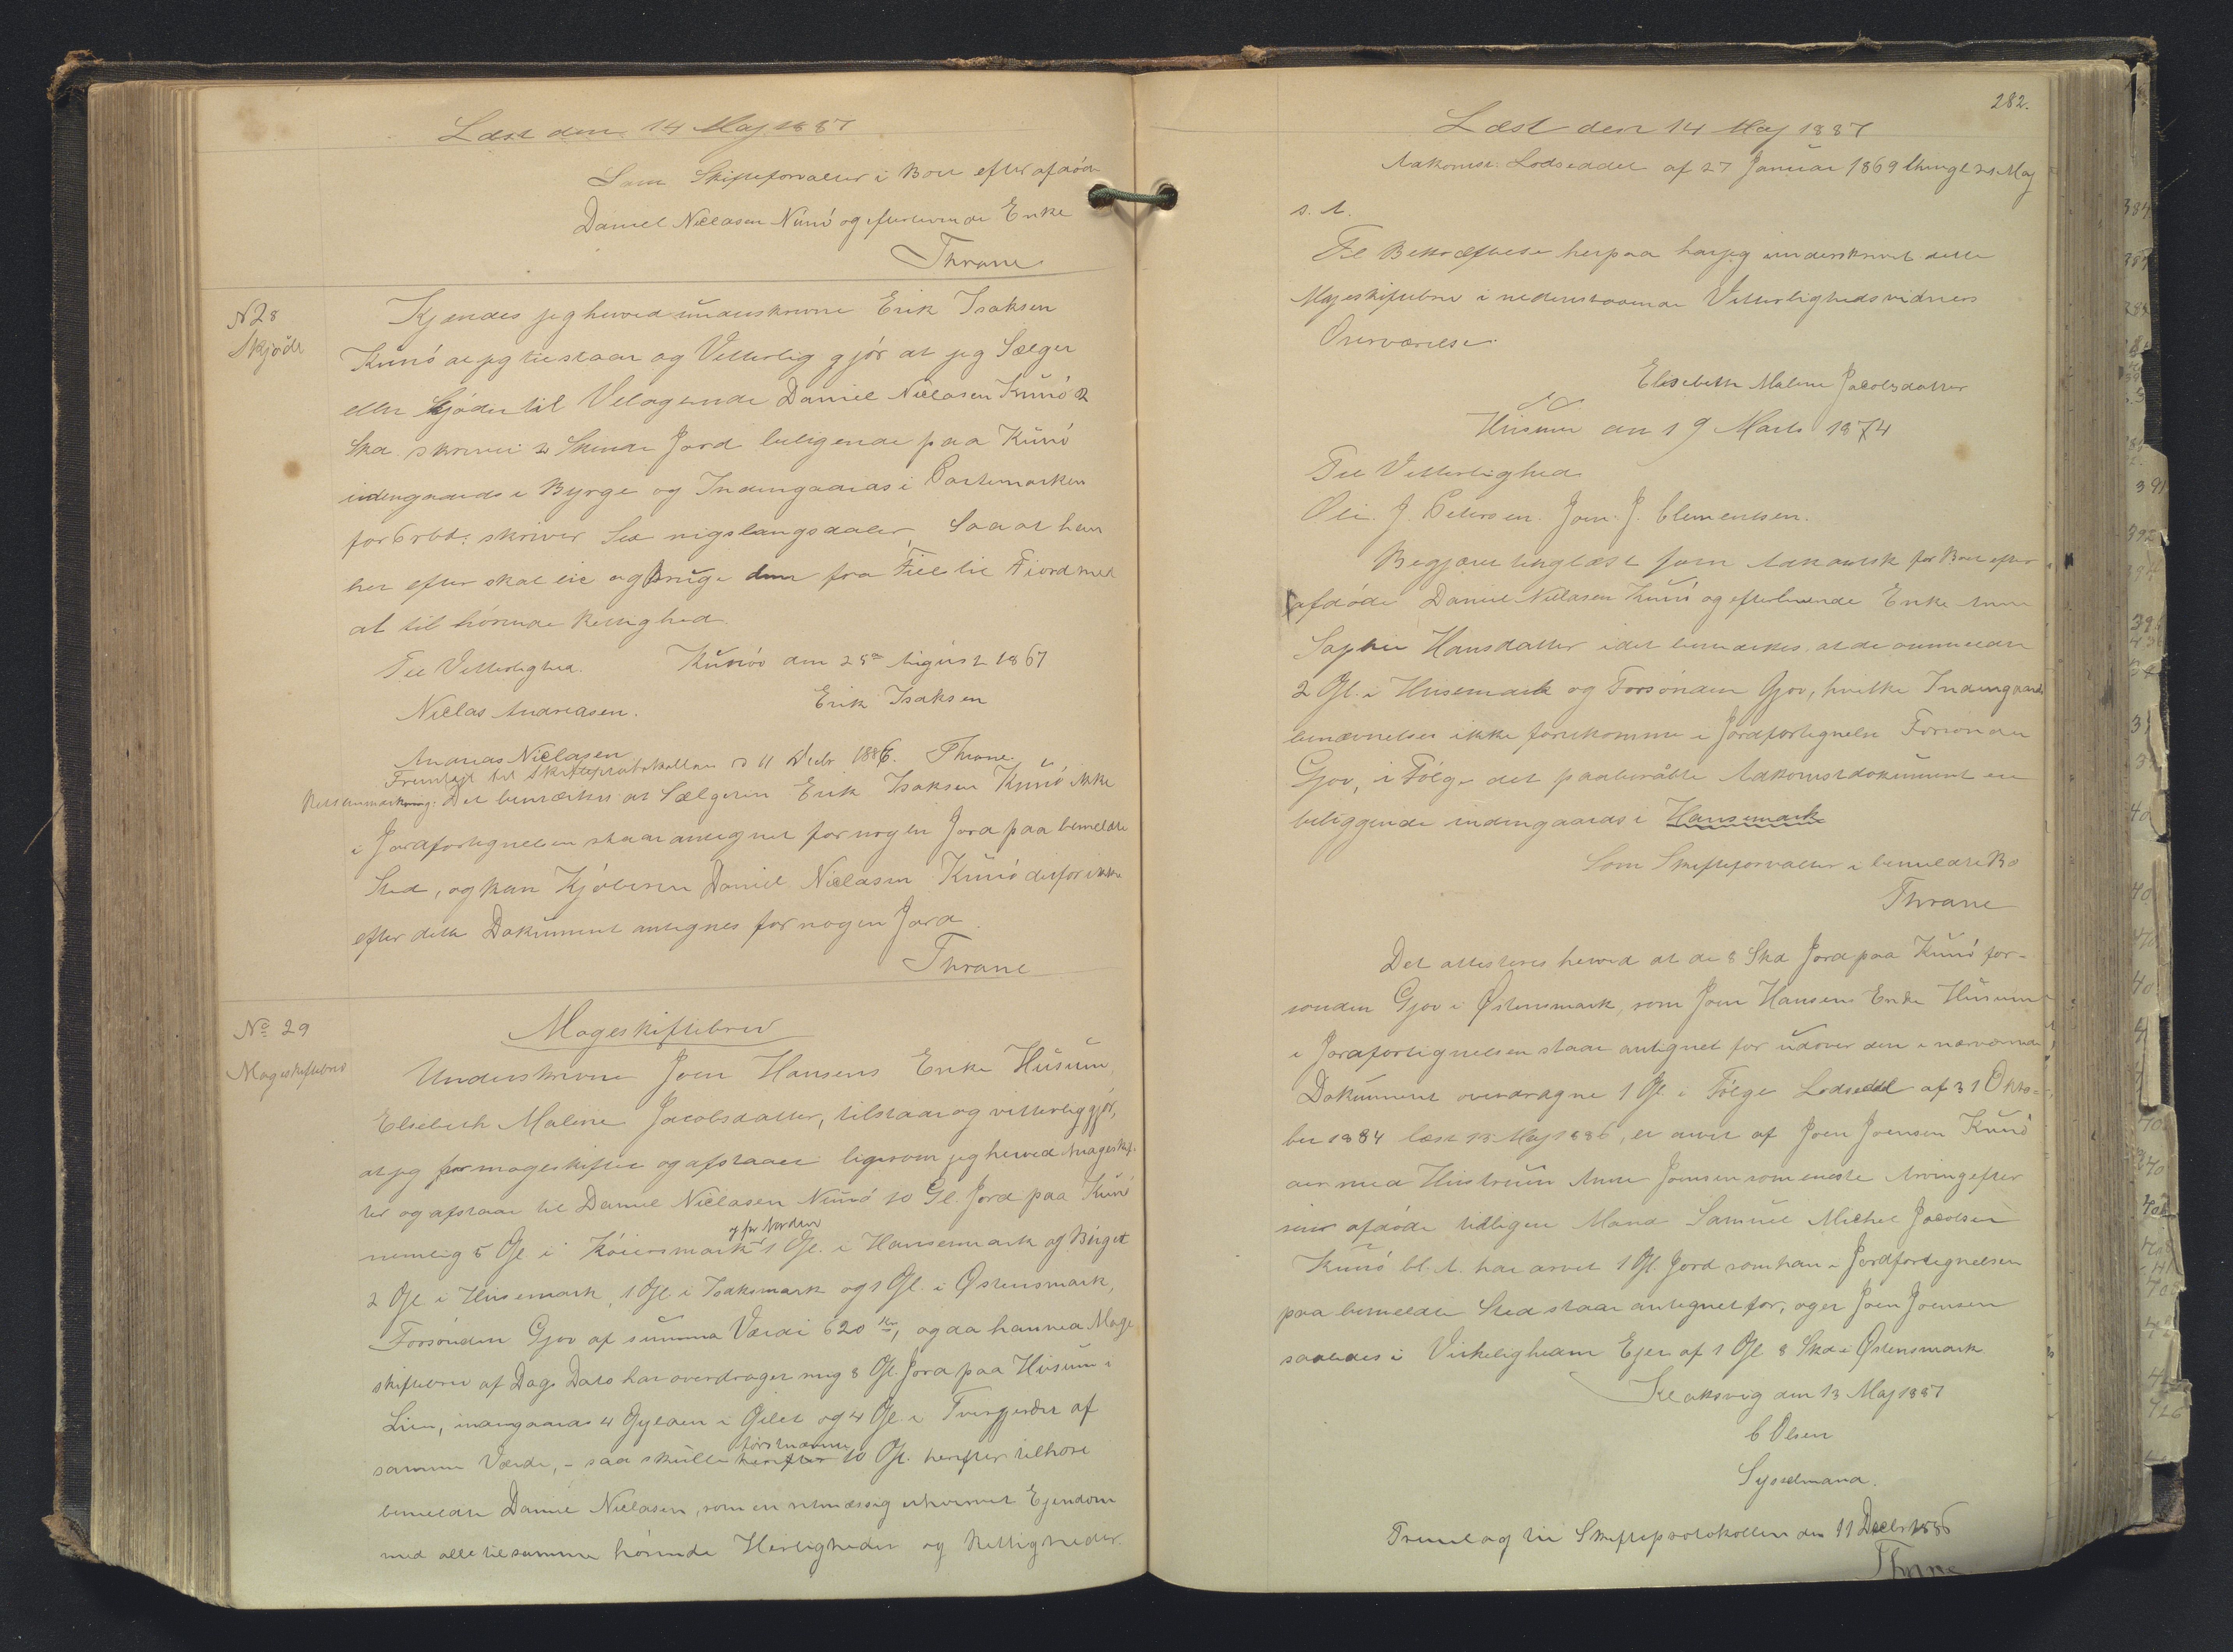 Læst den 14 Maj 1887
Som Skifteforvalter i Boet efter afdöde
Daniel Niclasen Kunö og efterlevende Enke
Thrane
N 28
Skjöde
Kjendes jeg herved underskrevne Erik Isaksen
Kunö at jeg tilstaar og Vitterlig gjör at jeg Sælger
eller Skjöder til Velagende Daniel Niclasen Kunö 2
Skd. skriver 2 Skinde Jord beligende paa Kunö
indengaards i Byrge og Indengaards i Partemarken
for 6 rbd: skriver Sex rigsbangsdaler, Saa at han
her efter skal eie og bruge dem fra Field til Fiord med
al til hörende Rettighed.
Til Vitterlighed. Kunöe den 25de August 1867
Niclas Andreasen. Erik Isaksen
Andreas Niclasen
Fremlagt til Skifteprotokollen d 11 Decbr 1886. Thrane.
Retsanmærkning: Det bemærkes at Sælgeren Erik Isaksen Kunö ikke
i Jordfortegnelsen staar antegnet for nogen Jord paa bemeldte
Sted, og kan Kjöberen Daniel Niclasen Kunö derfor ikke
efter dette Dokument antegnes for nogen Jord.
Thrane
No 29
Mageskiftebrev
Mageskiftebrev
Underskrevne Joen Hansens Enke Husum,
Elsebeth Malene Jacobsdatter, tilstaar og vitterliggjör,
at jeg har mageskiftet og afstaaet ligesom jeg herved mageskif-
ter og afstaar til Daniel Niclasen Kunö 10 Gl. Jord paa Kunö
og for Norden
nemlig 5 Gl. iKöiersmark 1 Gl. i Hansemark og Büget
2 Gl. i Husemark, 1 Gl i Isaksmark og 1 Gl. i Østensmark,
Forsönden Gjov af summa Værdi 620 Kr, og da han ved Mage
skiftebrev af Dags Dato har overdraget mig 8 Gl. Jord paa Husum i
Lien, indengaards 4 Gylden i Gilet og 4 Gl. i Tvergjerdet af
förstnævnte
samme Værdi, - saa skulle herefter 10 Gl. herefter tilhöre
bemeldte Daniel Niclasen, som en retmæssig erhvervet Ejendom
med alle til samme hörende Herligheder og Rettigheder.
282.
Læst den 14 Maj 1887
Adkomst: Lodseddel af 27 Januar 1869 thingl. 21 Maj
s. A.
Til Bekræftelse herpaa har jeg underskrevet dette
Mageskiftebrev i nedenstaaende Vitterlighedsvidners
Overværelse.
Elisebeth Malene Jacobsdatter
Husum den 19 Marts 1874
Til Vitterlighed
Ole. J. Petersen. Joen. J. Clementsen.
Begjæres tinglæst som Adkomst for Boet efter
afdöde Daniel Niclasen Kunö og efterlevende Enke Anne
Sophie Hansdatter idet bemærkes at de ommeldte
2 Gl. i Husemark og Forsönden Gjov, hvilke Indengaards
benævnelser ikke forekomme i Jordfortegnelsen Forsönden
Gjov, i Fölge det paaberåbte Adkomstdokument er
beliggende indengaards i Hansemark
Som Skifteforvalter i bemeldte Bo
Thrane
Det attesteres herved at de 8 Skd Jord paa Kunö for-
sonden Gjov i Østensmark, som Joen Hansens Enke Husum
i Jordfortegnelsen staar antegnet for udover den i nærværende
Dokument overdragne 1 Gl. i Fölge Lodseddel af 31 Okto-
ber 1884 læst 13 Maj 1886, er arvet af Joen Joensen Kunö
der med Hustruen Anne Joensen som eneste Arving efter
sin afdöde tidligere Mand Samuel Michel Jacobsen
Kunö bl. A. har arvet 1 Gl. Jord som han i Jordfortegnelsen
paa bemeldte Sted staar antegnet for, og er Joen Joensen
saaledes i Virkeligheden Ejer af 1 Gl 8 Skd i Østensmark
Klaksvig den 13 Maj 1887
C Olsen
Sysselmand.
Fremlagt til Skifteprotokollen den 11 Decbr 1886
Thrane